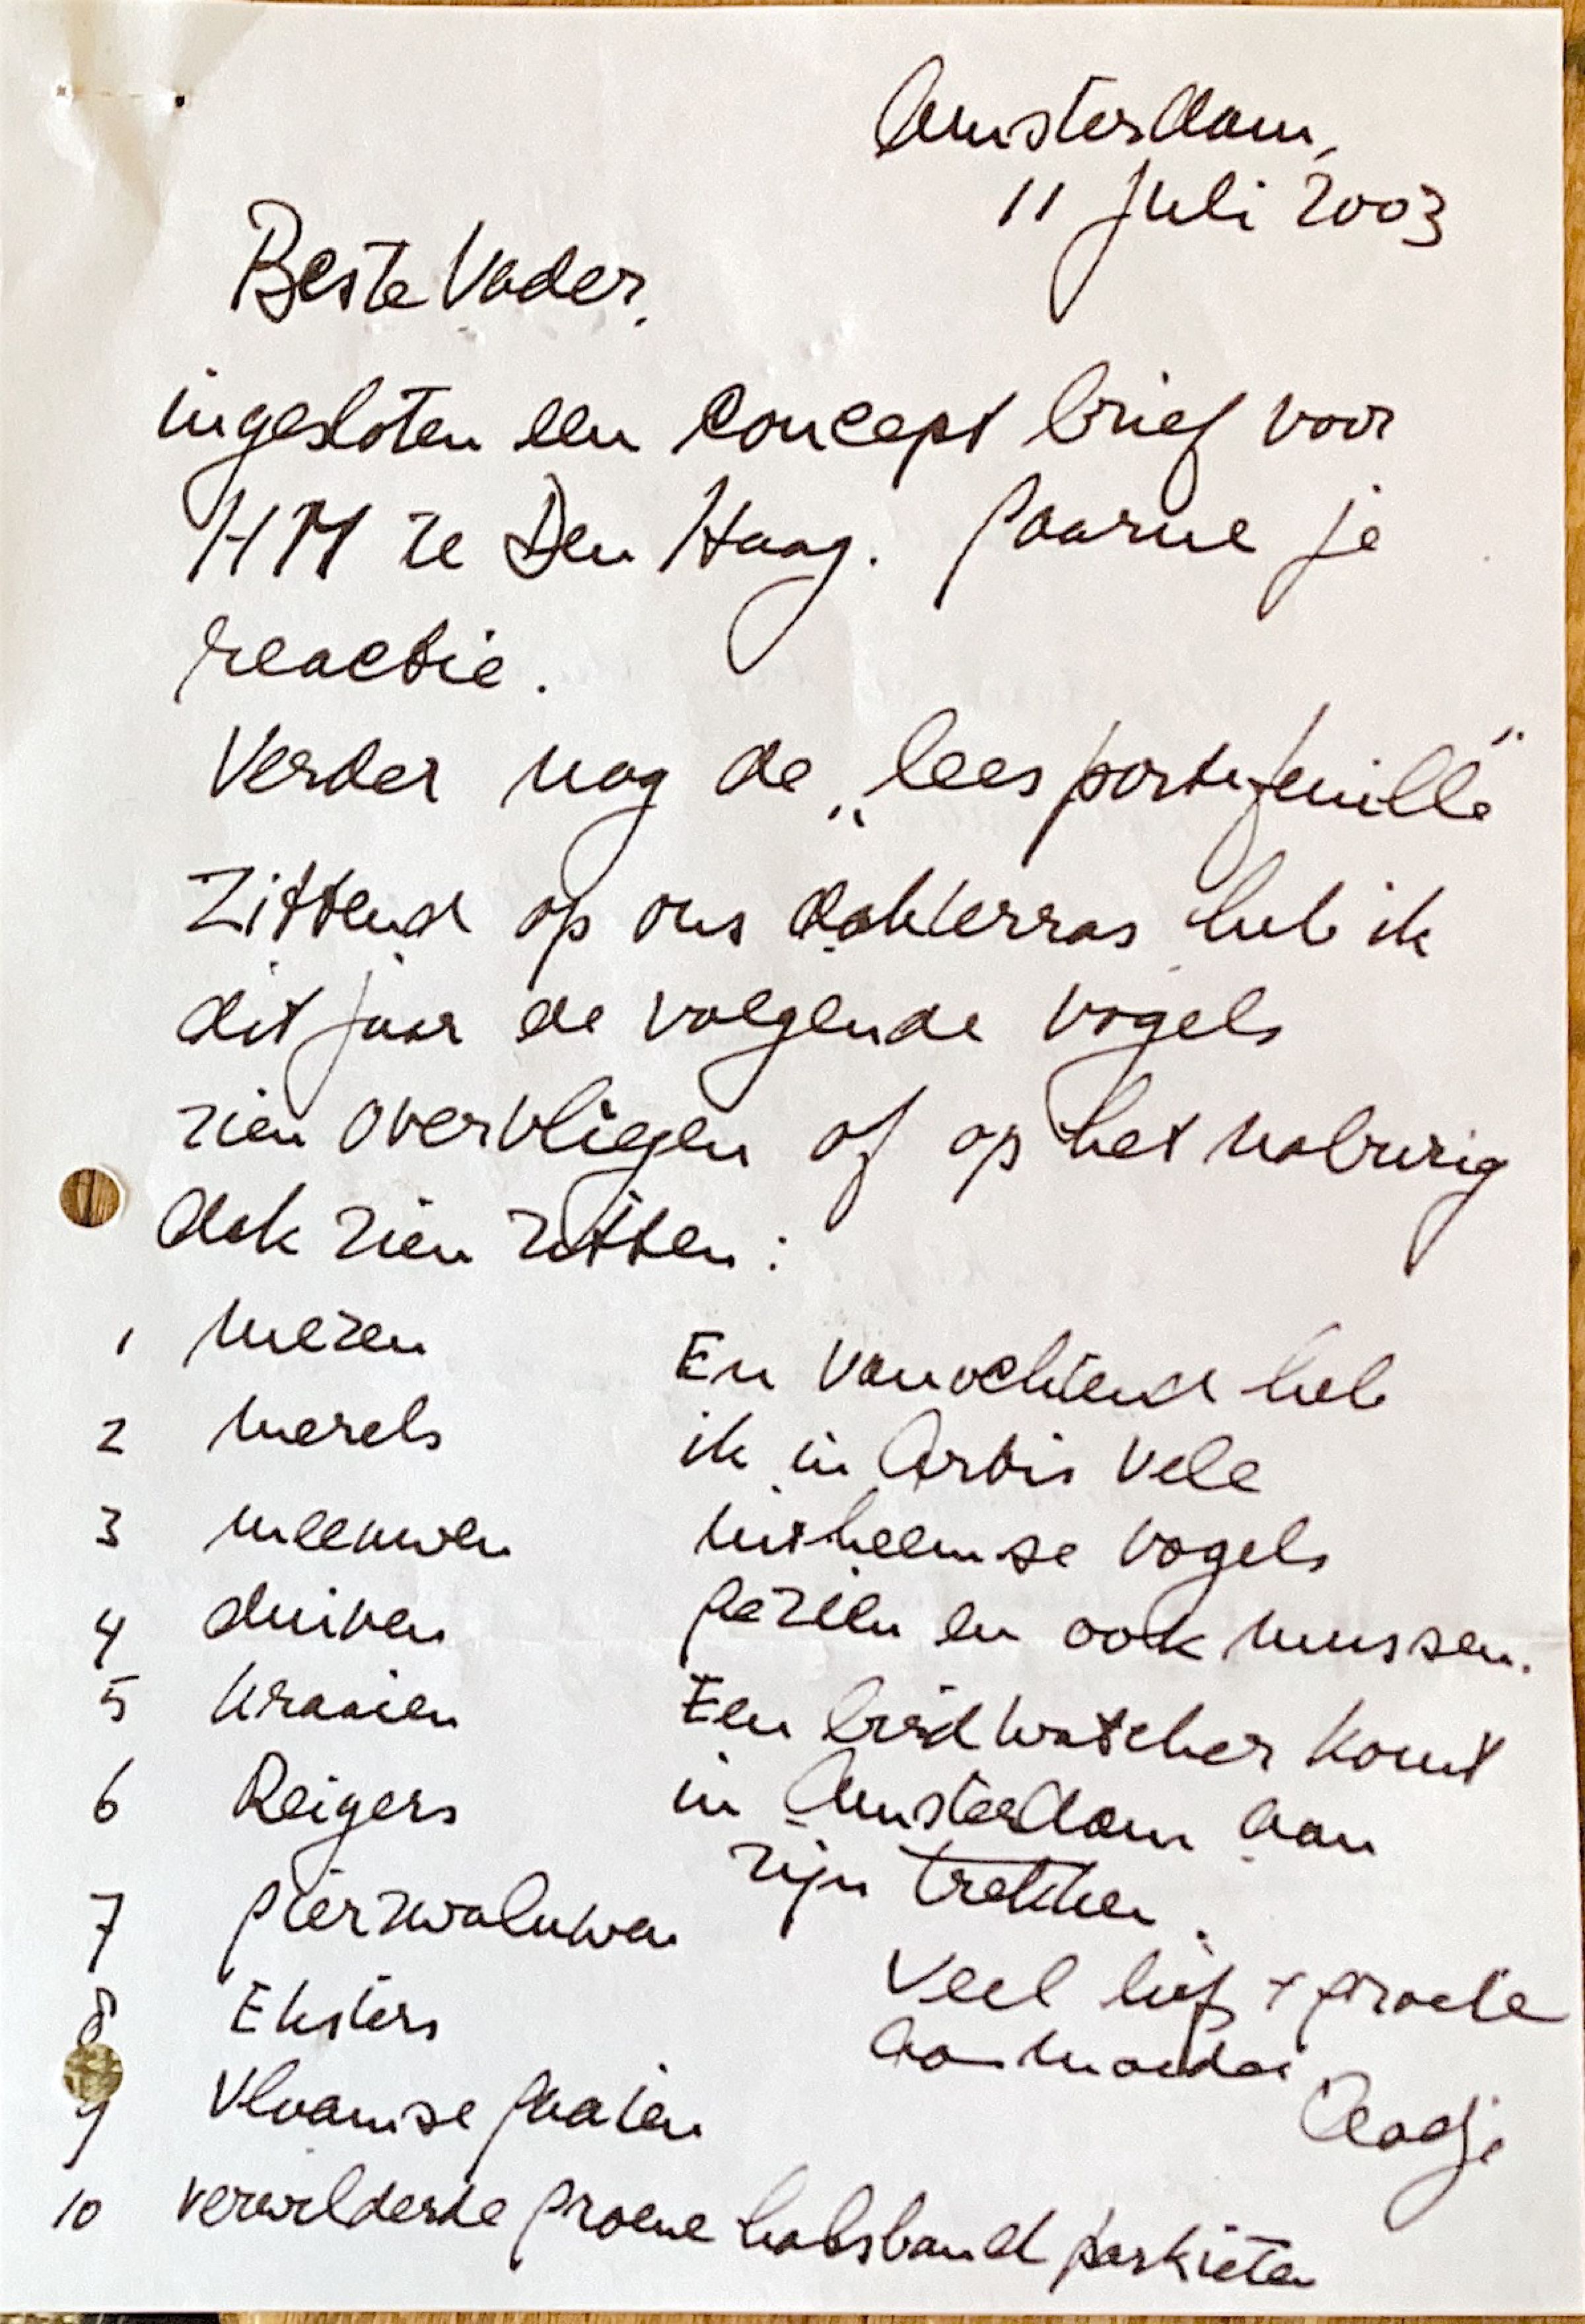 Amsterdam,
11 juli 2003
Beste Vader,
ingesloten een concept brief voor
HM te Den Haag. Gaarne je
reactie.
Verder nog de „leesportefeuille"
Zittend op ons dakterras heb ik
dit jaar de volgende vogels
zien overvliegen of op het naburig
dak zien zitten:
1 mezen
2 merels
3 meeuwen
4 duiven
5 kraaien
6 Reigers
7 gierzwaluwen
8 Eksters
9 Vlaamse gaaien
10 verwilderde groene halsband parkieten
En vanochtend heb
ik in Artis vele
uitheemse vogels
gezien en ook mussen.
Een birdwatcher komt
in Amsterdam aan
zijn trekken.
Veel liefs + groete
aan moeder